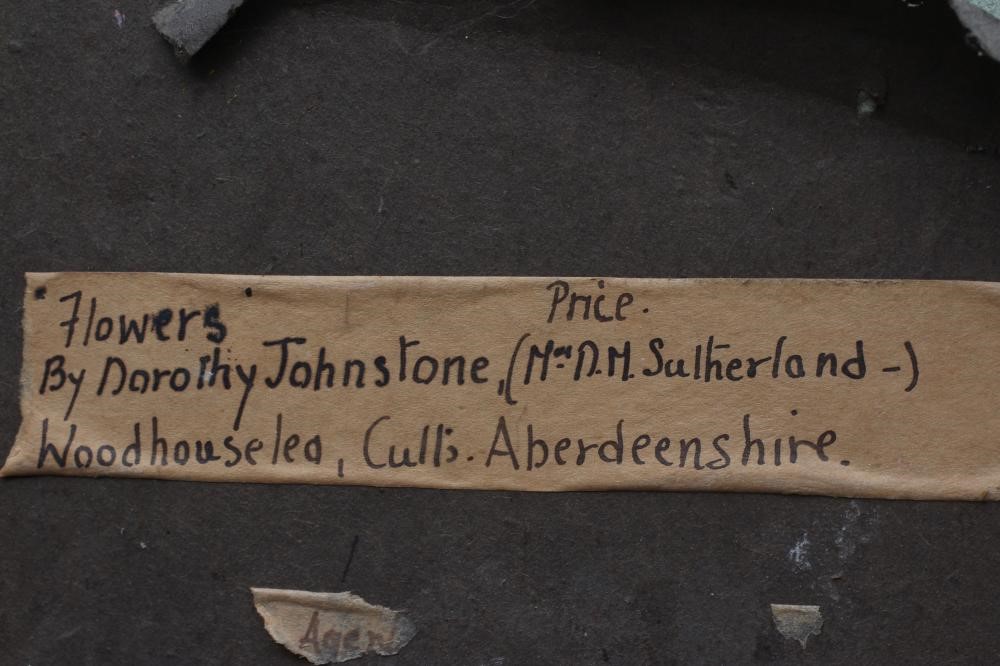 "Flowers" Price.
By Dorothy Johnstone, (Mrs D.M. Sutherland -)
Woodhouselea, Cults. Aberdeenshire.
Agen